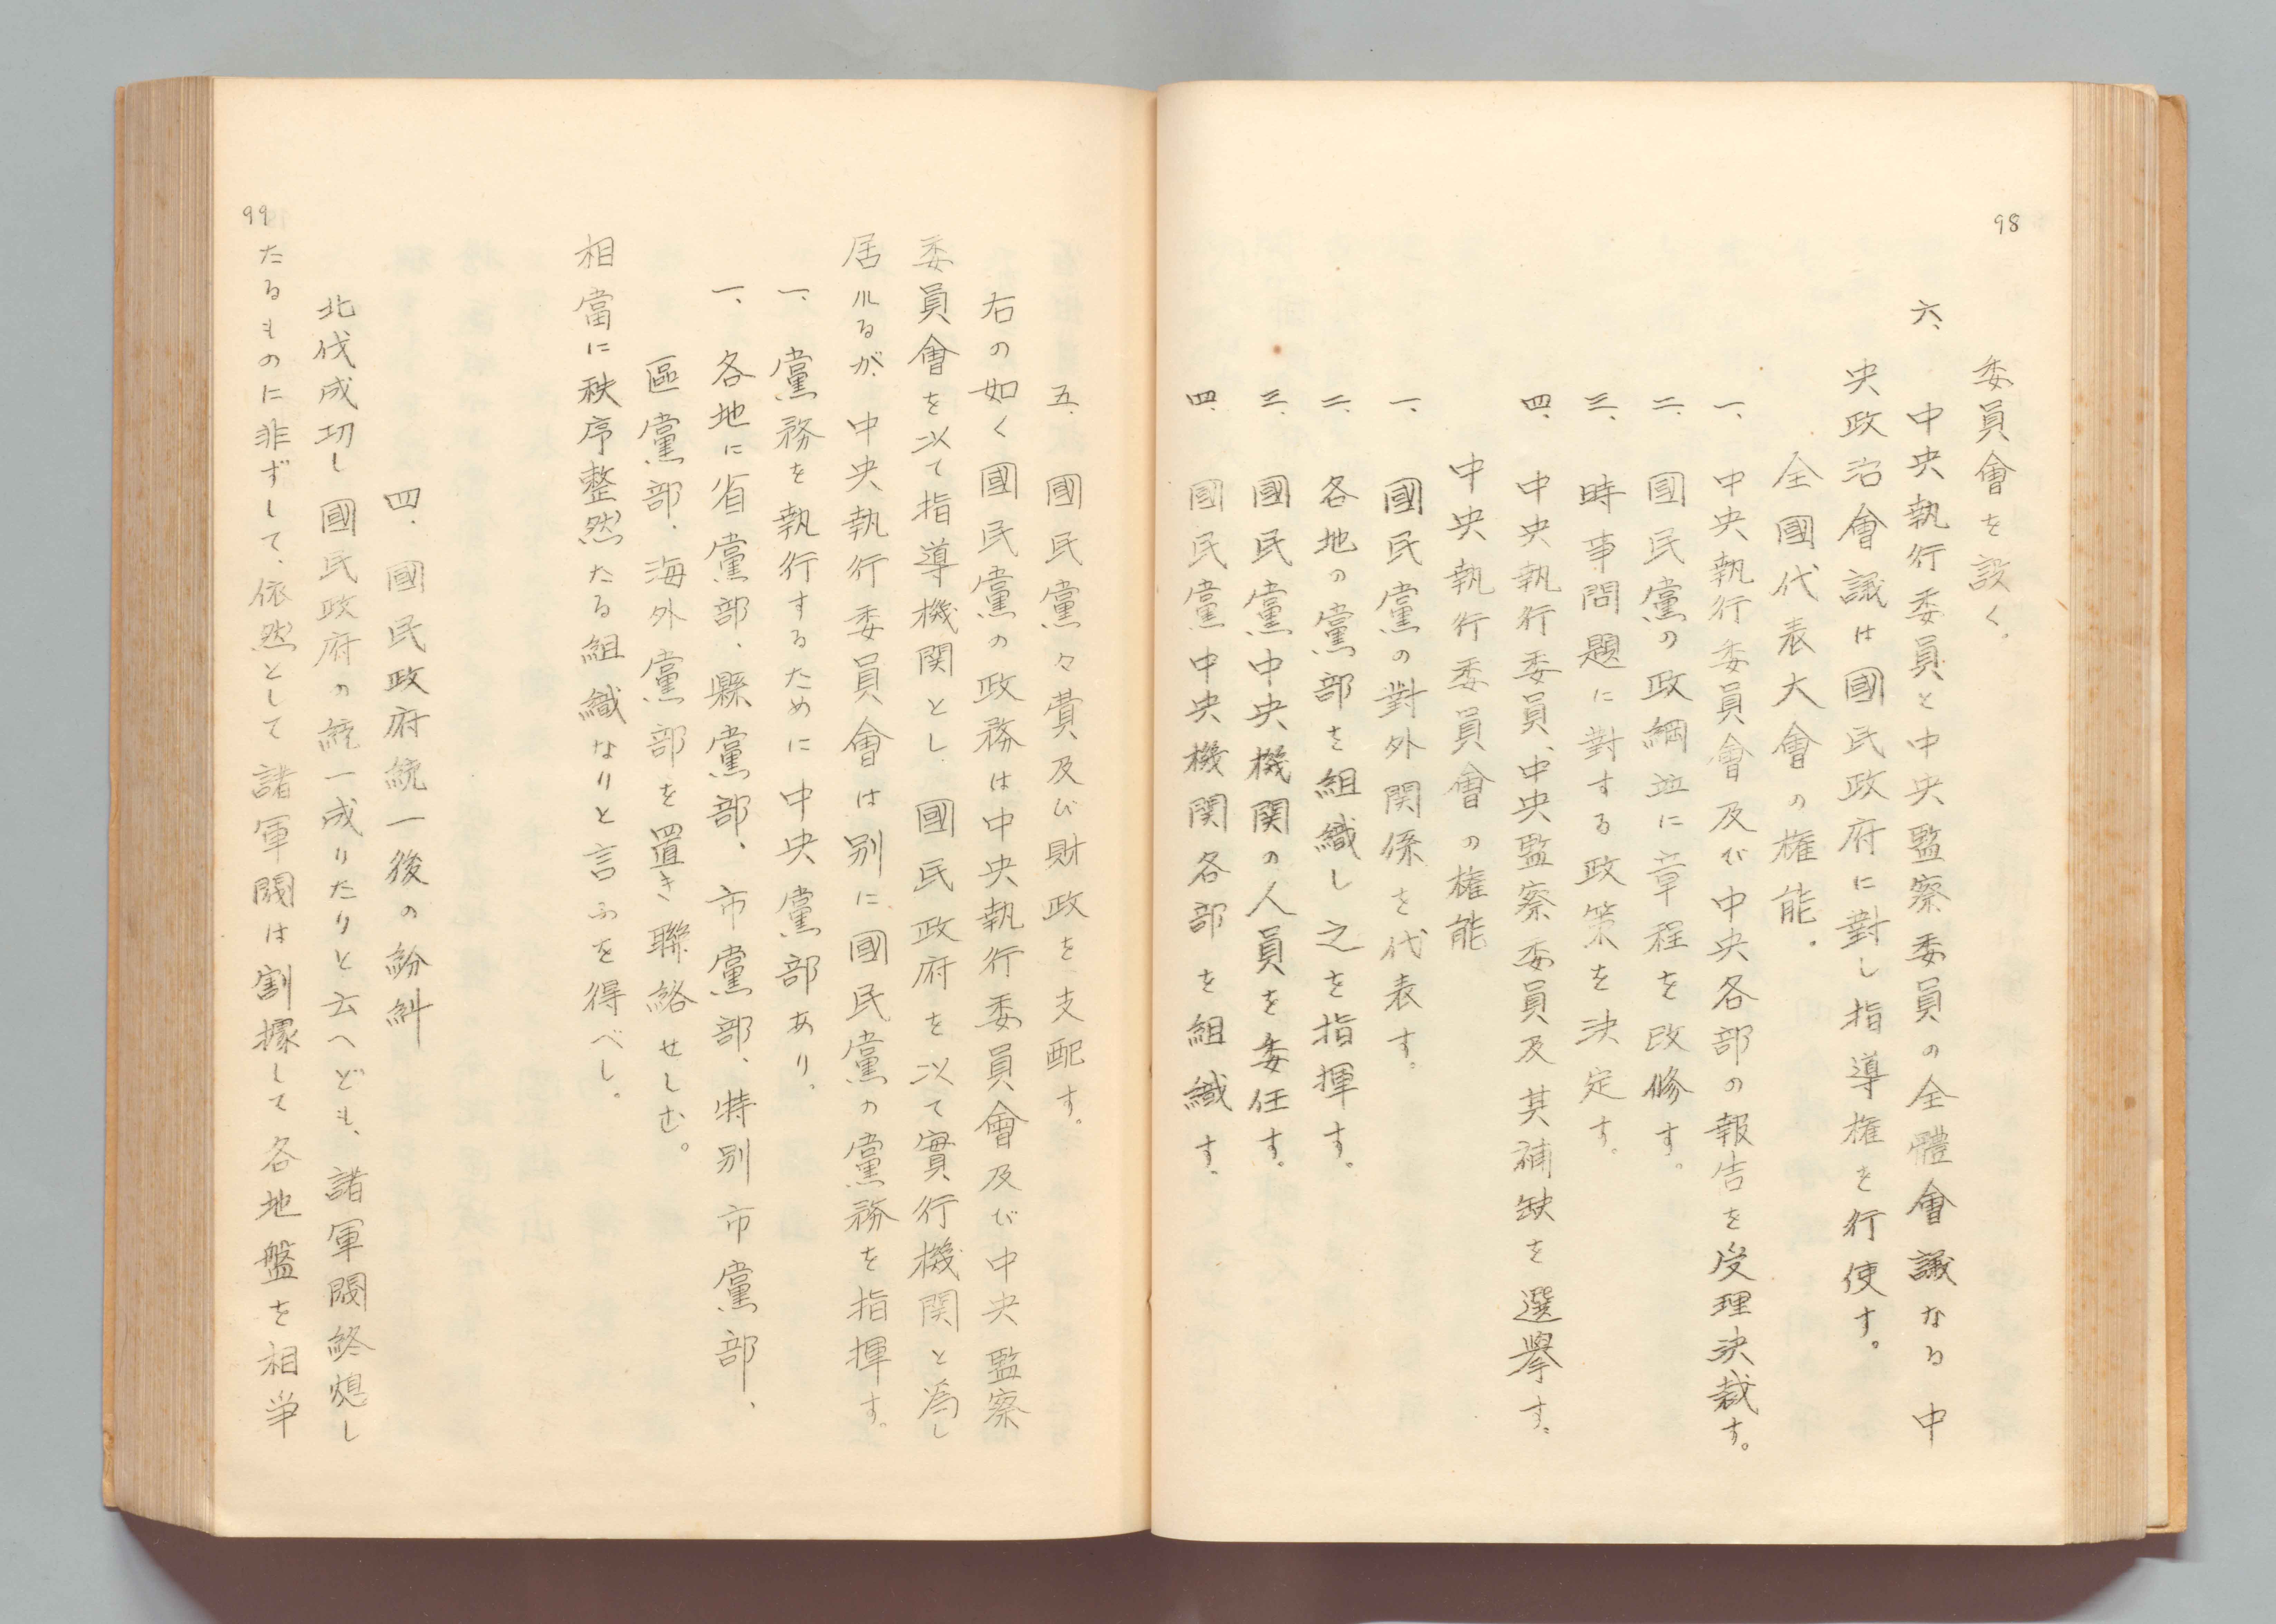 98
委員會を設く。
六、中央執行委員と中央監察委員の全體會議なる中
央政治會議は國民政府に對し指導権を行使す。
全國代表大會の権能。
一、中央執行委員會及び中央各部の報告を受理決裁す。
二、國民黨の政綱並に章程を改修す。
三、時事問題に對する政策を決定す。
四、中央執行委員、中央監察委員及其補缺を選擧す、
中央執行委員會の権能
一、國民黨の對外関係を代表す。
二、各地の黨部を組織し之を指揮す。
三、國民黨中央機関の人員を委任す。
四、國民黨中央機関各部を組織す、
五、國民黨々費及び財政を支配す。
右の如く國民黨の政務は中央執行委員會及び中央監察
委員會を以て指導機関とし國民政府を以て實行機関と為し
居ルるが、中央執行委員會は別に國民黨の黨務を指揮す。
一、黨務を執行するために中央黨部あり。
一、各地に省黨部、縣黨部、市黨部、特別市黨部、
區黨部、海外黨部を置き聯絡せしむ。
相當に秩序整然たる組織なりと言ふを得べし。
四、國民政府統一後の紛糾
北伐成功し國民政府の統一成りたりと云へども、諸軍閥終熄し
99
たるものに非ずして、依然として諸軍閥は割據して各地盤を相爭